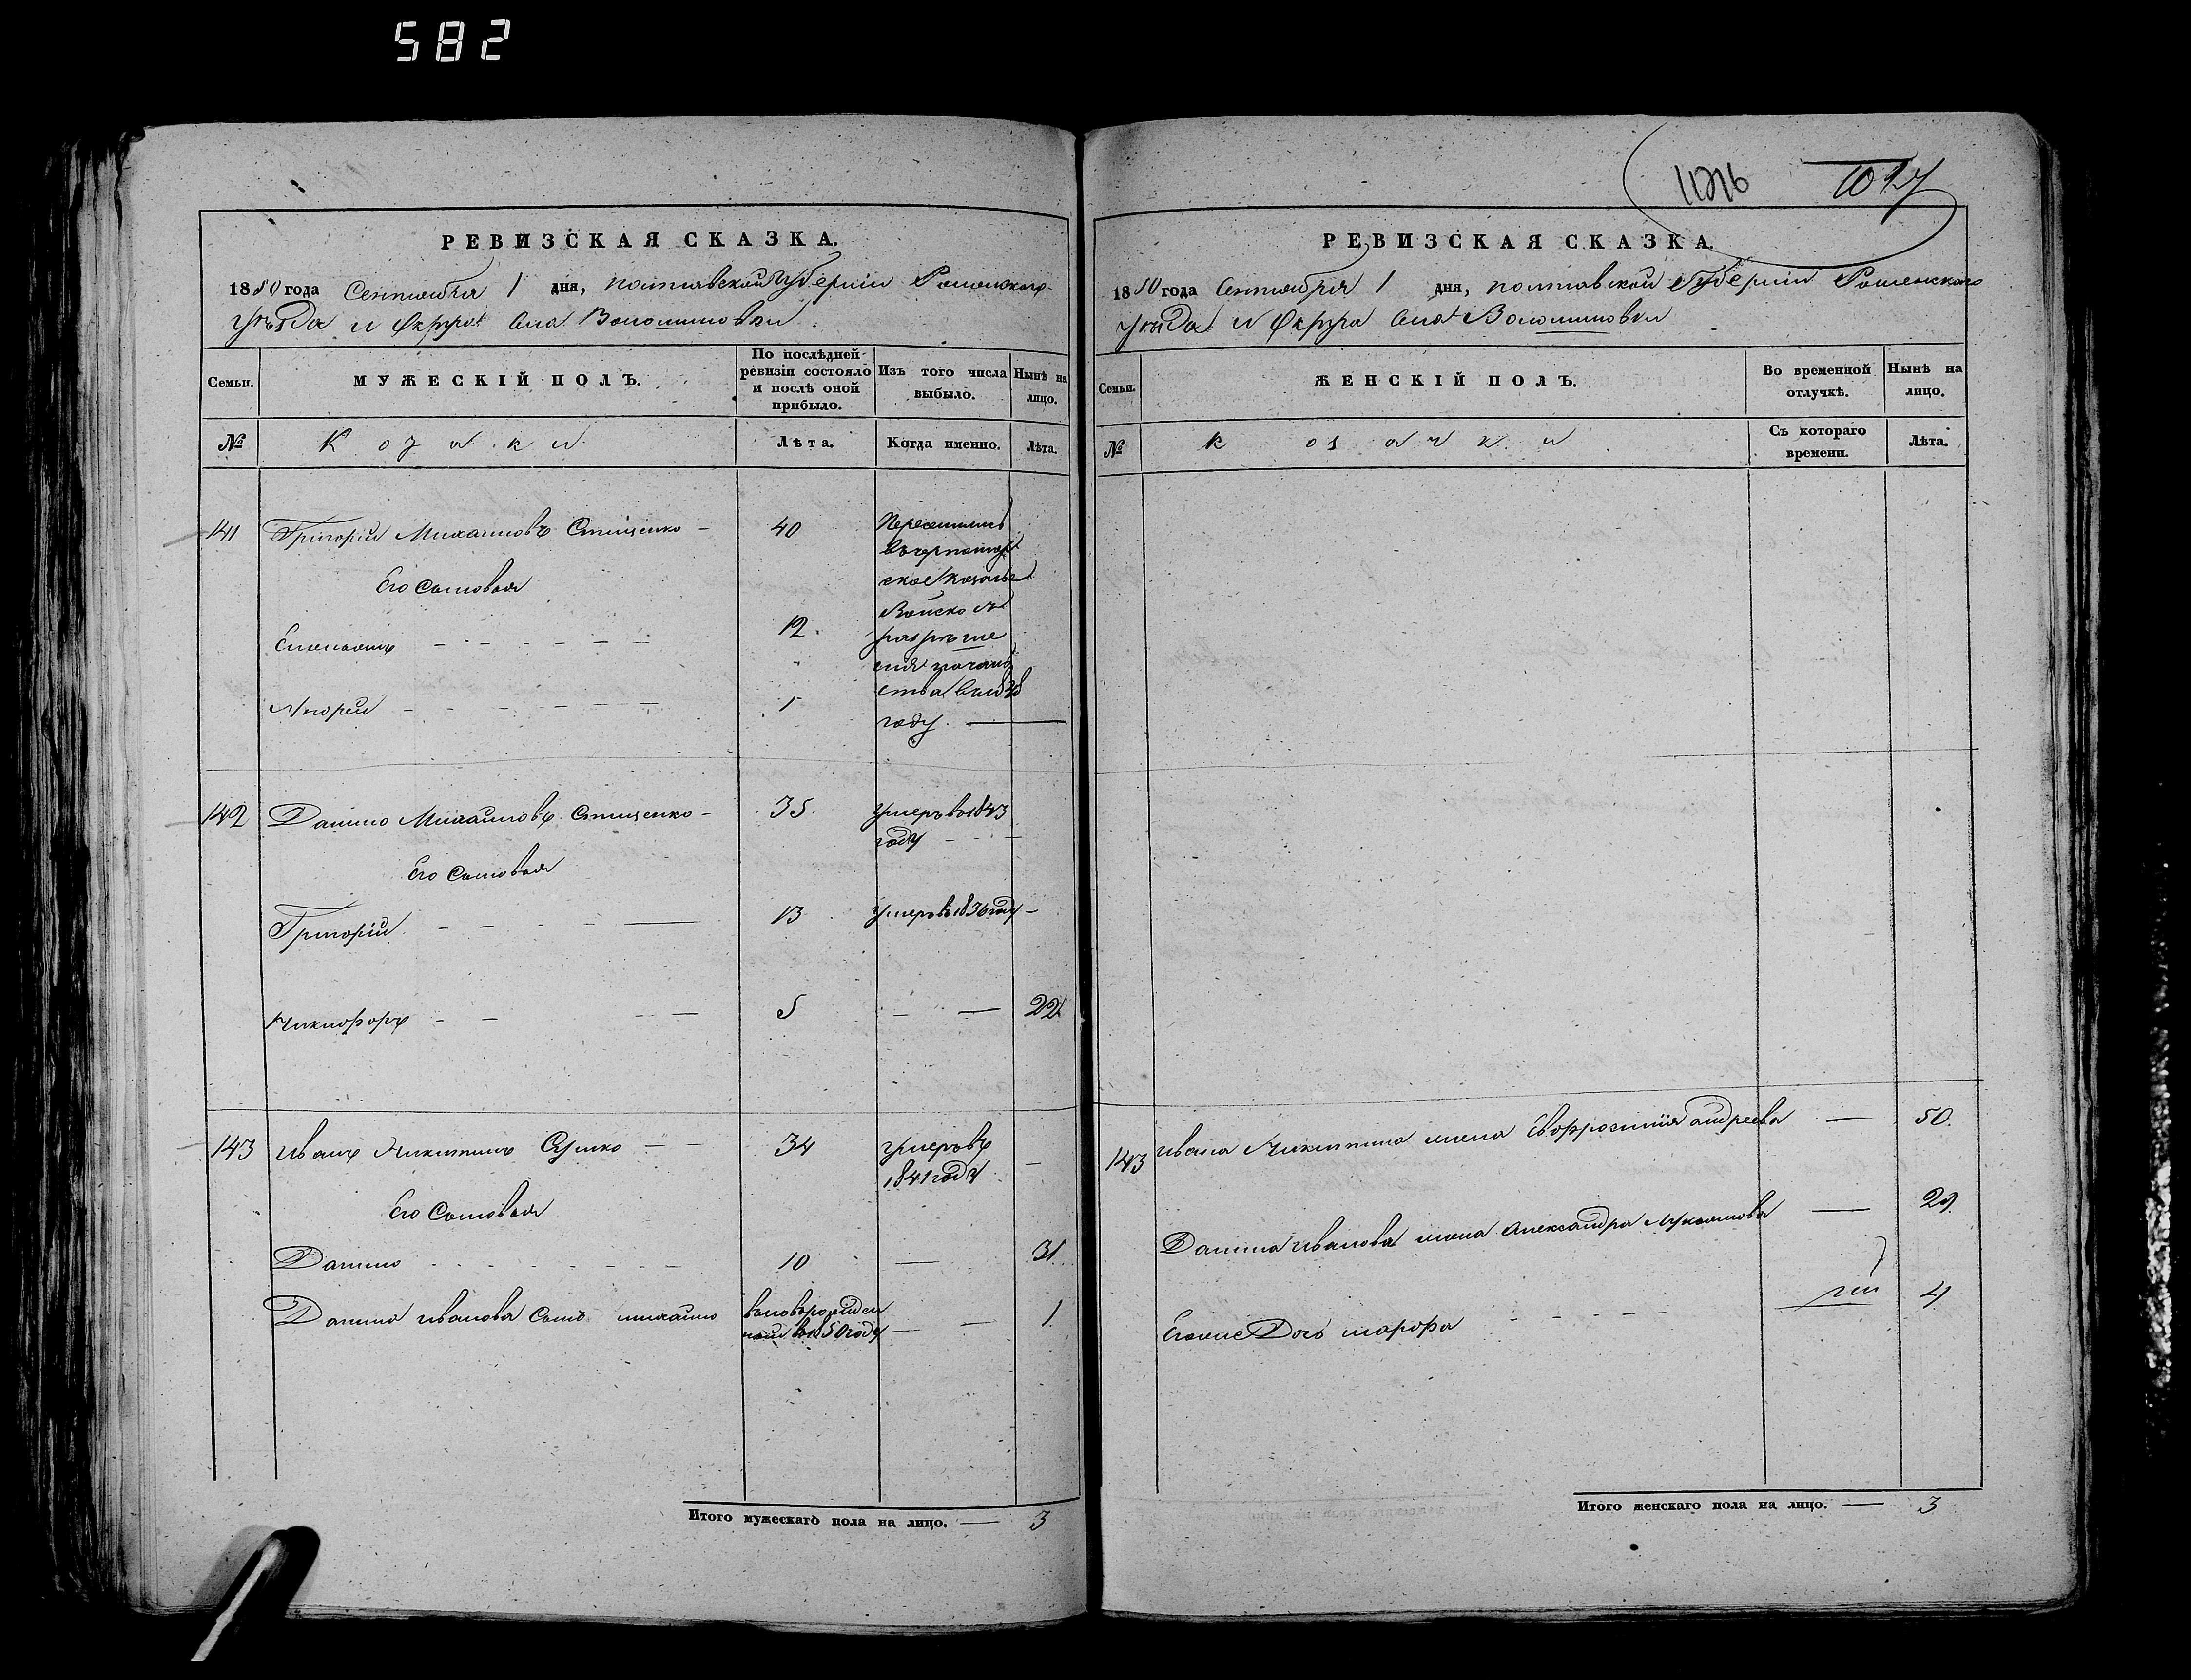 582
1017
РЕВИЗСКАЯ СКАЗКА.
1850 года Сентября 1 дня, полтавской губерніи Роменского
уѣзда и Округа Села Волошиновки
Семьи.
МУЖЕСКІЙ ПОЛЪ.
По послѣдней ревизіи состояло и послѣ оной прибыло.
Изъ того числа выбыло.
Нынѣ на лицо.
№
Козаки
Лѣта.
Когда именно.
Лѣта.
141 Григорій Михайловъ Стищенко 40 Переселились
въ черномор
ское козачье
Его Сыновья
Войско съ
Емельянъ 12. разрѣше
нія началь
ства въ 1848
Андрей 1 году.
142 Данило Михайловъ Стищенко 35. Умеръ в 1843
году
Его Сыновья
Григорій 13 Умеръ в 1836 году
Никифоръ 5 22
143 Иванъ Никитинъ Сулко 34 Умеръ въ
1841 году
Его Сыновья
Данило 10 31.
Данила Иванова Сынъ михайло вновьрожден
ной въ 1850 году 1
Итого мужескаго пола на лицо. 3
РЕВИЗСКАЯ СКАЗКА.
1850 года Сентября 1 дня, полтавской Губерніи Роменского
уѣзда и Округа Села Волошиновки
Семьи.
ЖЕНСКІЙ ПОЛЪ.
Во временной отлучкѣ.
Нынѣ на лицо.
№
Козачки
Съ котораго времени.
Лѣта.
143 Ивана Никитина жена Евфросинія андреева 50.
Данила Иванова жена Александра Лукьянова 29.
Егоже Дочь марфа 4
Итого женскаго пола на лицо. 3